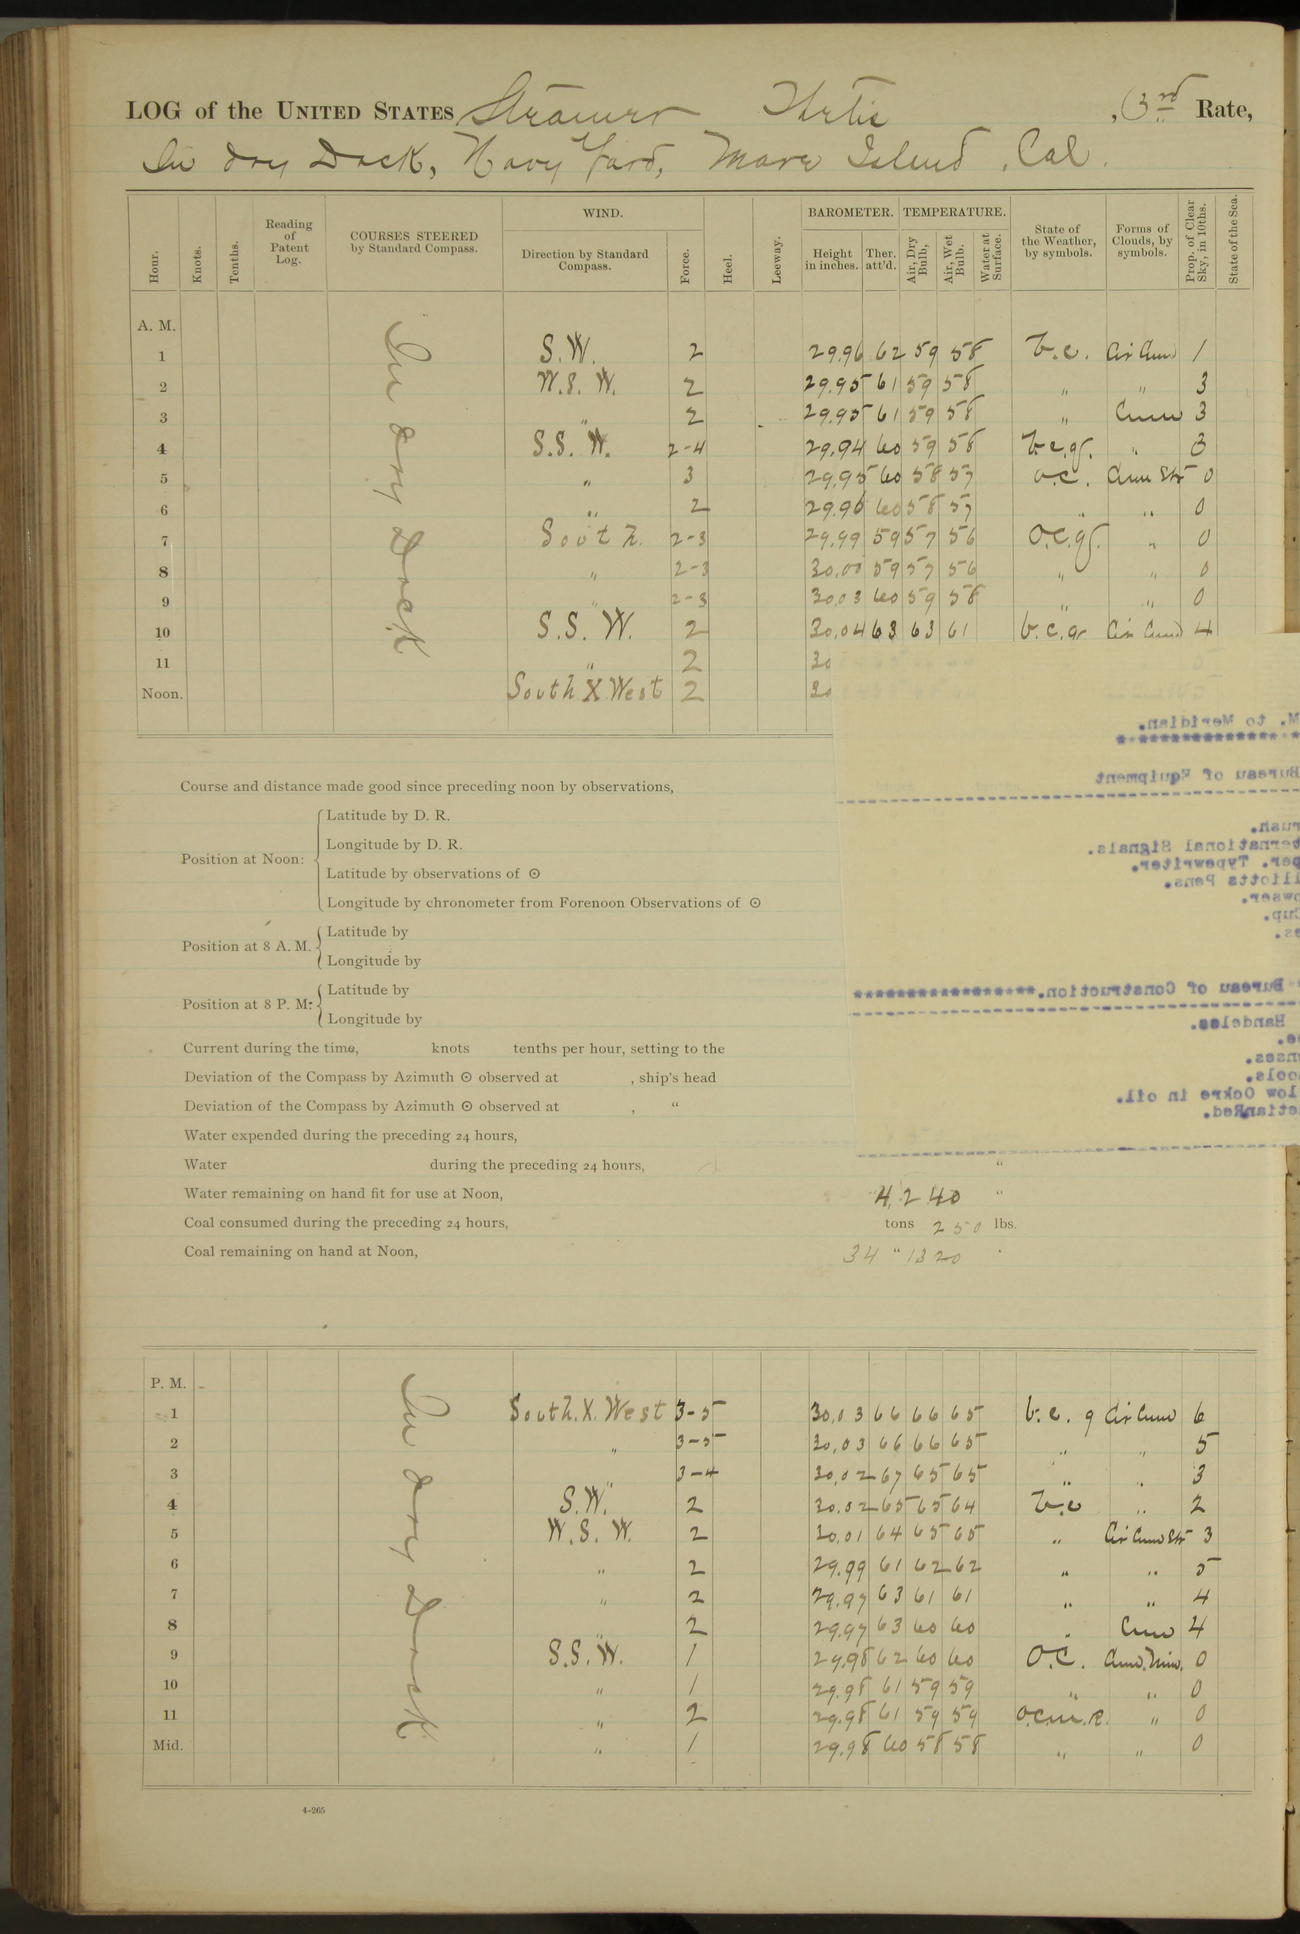 LOG of the UNITED STATES Steamer Thetis, 3rd Rate,
In dry Dock, Navy Yard, Mare Island, Cal.
Hour. Knots. Tenths. Reading of Patent Log. COURSES STEERED by Standard Compass. WIND. Direction by Standard Compass. Force. Heel. Leeway. BAROMETER. Height in inches. Ther. att'd. TEMPERATURE. Air, Dry Bulb, Air, Wet Bulb. Water at Surface. State of the Weather, by symbols. Forms of Clouds, by symbols. Prop. of Clear Sky, in 10ths. State of the Sea.
A. M.
In dry Dock
1 S.W. 2 29.96 62 59 58 b.c. Cir Cum 1
2 W.S.W. 2 29.95 61 59 58 " " 3
3 " 2 29.95 61 59 58 " Cum 3
4 S.S.W. 2-4 29.94 60 59 58 b.c.g. " 3
5 " 3 29.95 60 58 57 o.c. Cum Str 0
6 " 2 29.96 60 58 57 " " 0
7 South. 2-3 29.99 59 57 56 O.C.g. " 0
8 " 2-3 30.00 59 57 56 " " 0
9 " 2-3 30.03 60 59 58 " " 0
10 S.S.W. 2 30.04 63 63 61 b.c.g Cir Cum 4
11 " 2 30
Noon. South X West 2 30
M. to Meridian.
Bureau of Equipment
ternational Signals.
per. Typewriter.
lliotts Pens.
Cup.
Bureau of Construction.
Handeles.
low Ockre in oil.
etianRed.
Course and distance made good since preceding noon by observations,
Position at Noon:
Latitude by D. R.
Longitude by D. R.
Latitude by observations of ⊙
Longitude by chronometer from Forenoon Observations of ⊙
Position at 8 A. M.
Latitude by
Longitude by
Position at 8 P. M:
Latitude by
Longitude by
Current during the time, knots tenths per hour, setting to the
Deviation of the Compass by Azimuth ⊙ observed at , ship's head
Deviation of the Compass by Azimuth ⊙ observed at , "
Water expended during the preceding 24 hours,
Water during the preceding 24 hours, "
Water remaining on hand fit for use at Noon, 4,240 "
Coal consumed during the preceding 24 hours, tons 250 lbs.
Coal remaining on hand at Noon, 34 " 1320 "
P. M.
In dry Dock
1 South.X.West 3-5 30.03 66 66 65 b.c. g Cir Cum 6
2 " 3-5 30.03 66 66 65 " " 5
3 " 3-4 30.02 67 65 65 " " 3
4 S.W. 2 30.02 65 65 64 b.c " 2
5 W.S.W. 2 30.01 64 65 65 " Cir Cum Str 3
6 " 2 29.99 61 62 62 " " 5
7 " 2 29.97 63 61 61 " " 4
8 " 2 29.97 63 60 60 " Cum 4
9 S.S.W. 1 29.98 62 60 60 O.C. Cum. Nim. 0
10 " 1 29.98 61 59 59 " " 0
11 " 2 29.98 61 59 59 o.c.m.R. " 0
Mid. " 1 29.98 60 58 58 " " 0
4-265